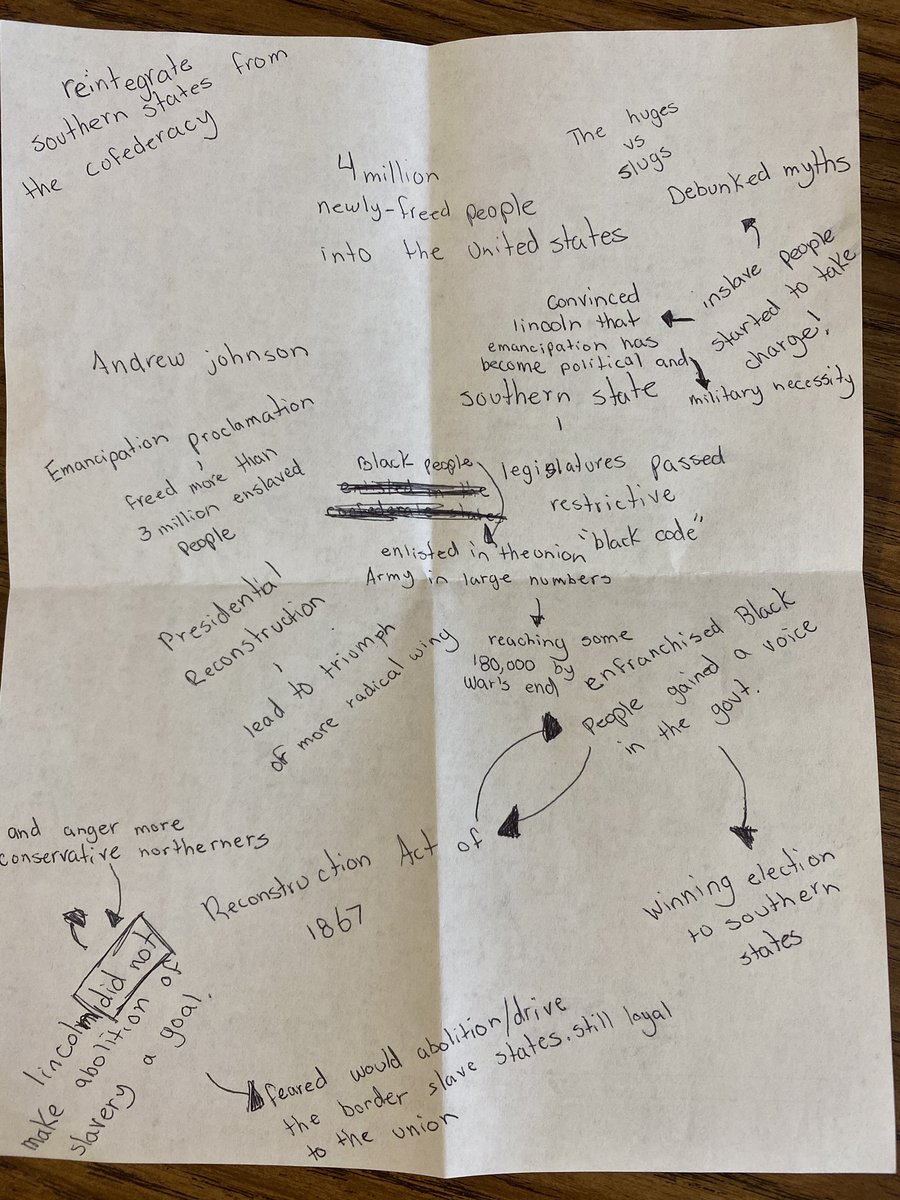 reintegrate
southern states from
the cofederacy
4 million
newly-freed people
into the United states
The huges
vs
slugs
Debunked myths
inslave people
started to take
charge!
Convinced
lincoln that
emancipation has
become political and
military necessity
southern state
legislatures passed
restrictive
"black code"
Andrew johnson
Emancipation proclamation
freed more than
3 million enslaved
people
Black people
enlisted in the union
Army in large numbers
reaching some
180,000 by
war's end
Presidential
Reconstruction
lead to triumph
of more radical wing
enfranchised Black
People gained a voice
in the govt.
Reconstruction Act of
1867
winning election
to southern
states
and anger more
conservative northerners
lincoln did not
make abolition of
slavery a goal.
feared would abolition/drive
the border slave states. still loyal
to the union